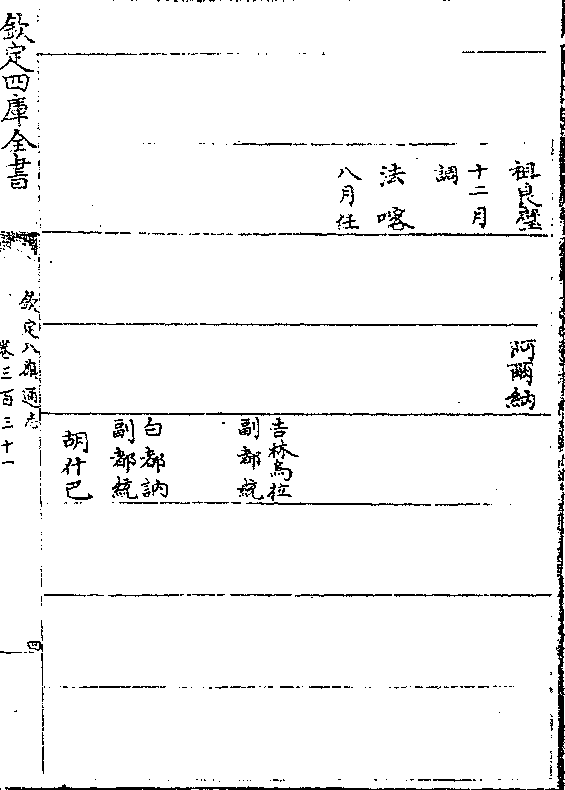 祖良璧
十二月
調
法喀
八月任
阿爾納
吉林烏拉
副都統
白都訥
副都統
胡什巴
欽定四庫全書
欽定八旗通志
卷三百三十一
四